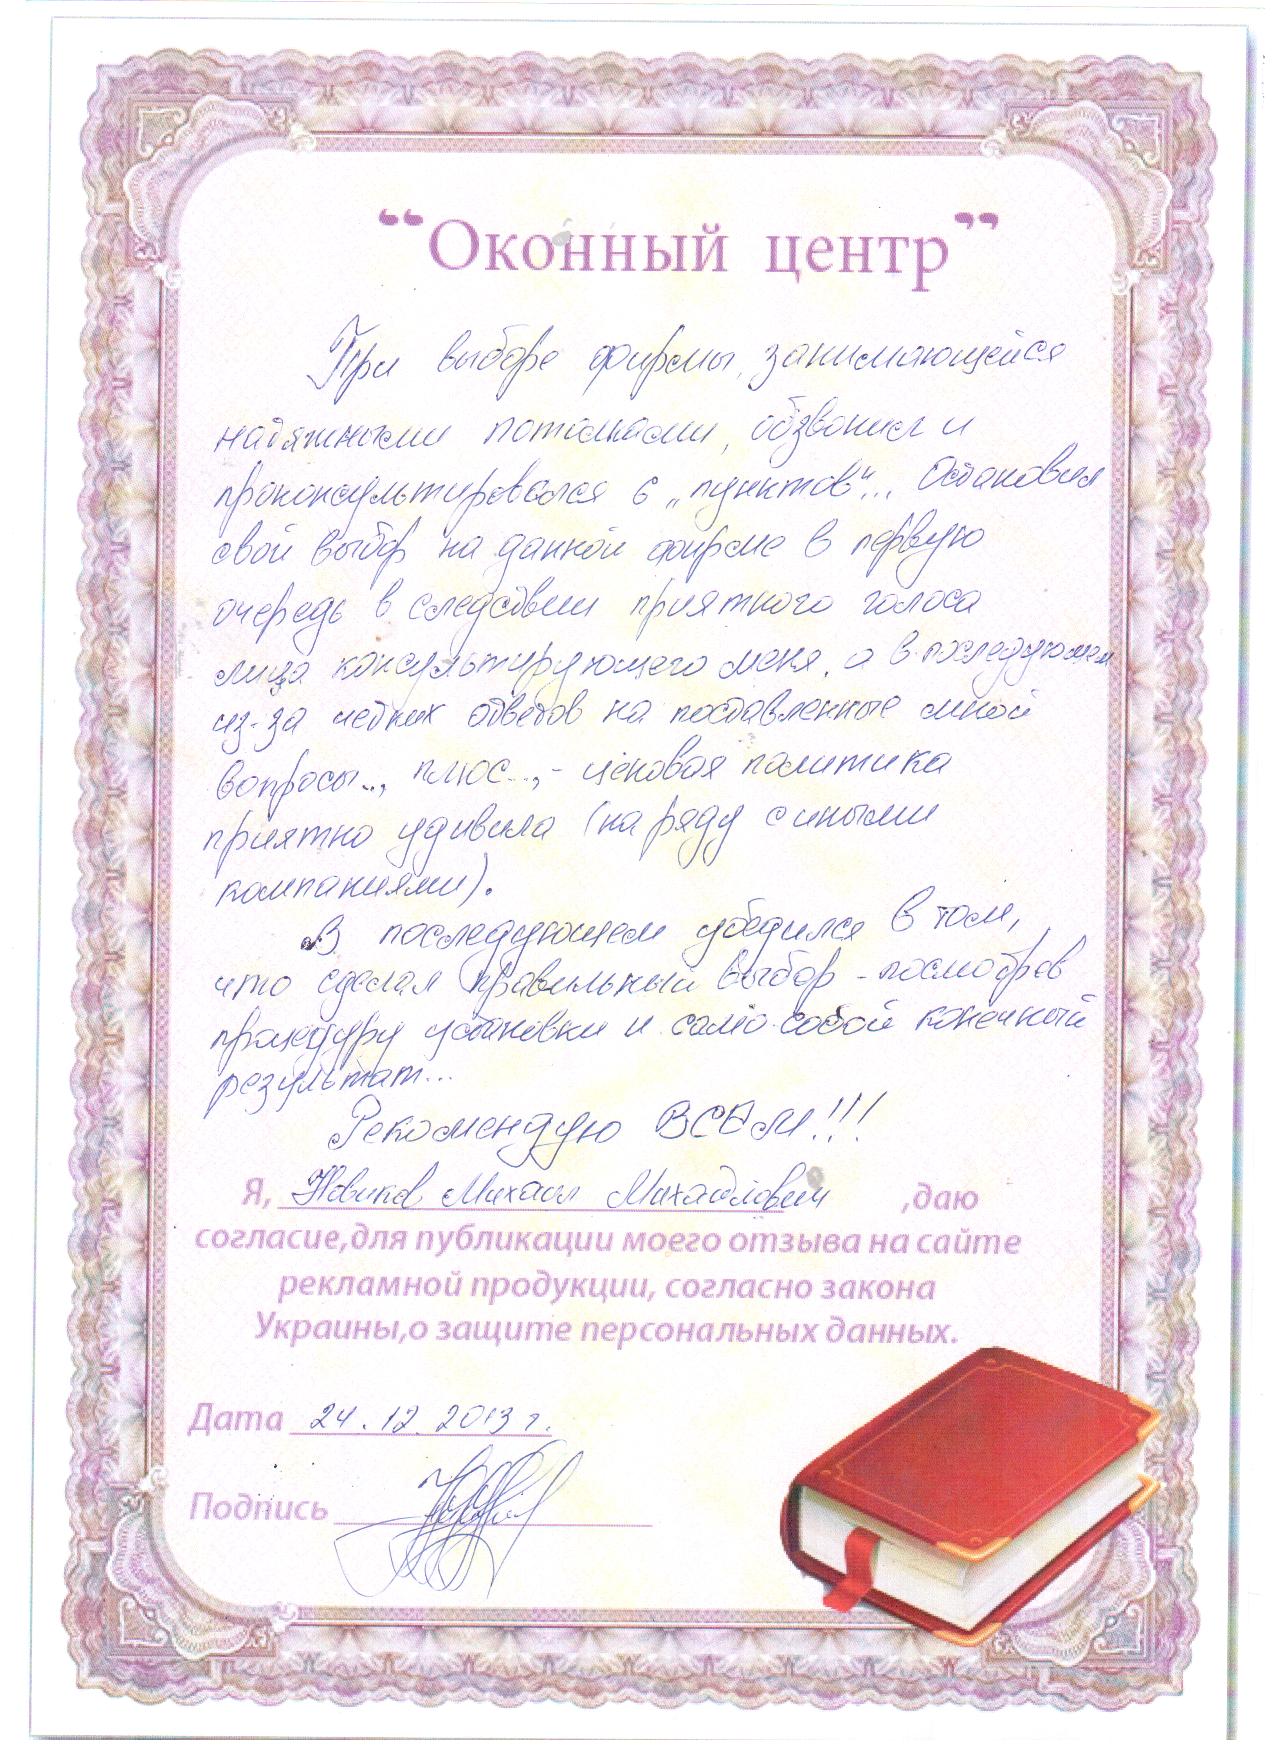 “Оконный центр”
При выборе фирмы, занимающейся
натяжными потолками, обзвонил и
проконсультировался 6 „пунктов“... Остановил
свой выбор на данной фирме в первую
очередь в следствии приятного голоса
лица консультирующего меня, а в последующем
из-за четких ответов на поставленные мной
вопросы.., плюс..., - ценовая политика
приятно удивила (на ряду с иными
компаниями).
В последующем убедился в том,
что сделал правильный выбор - посмотрев
процедуру установки и само собой конечный
результат...
Рекомендую ВСЕМ!!!
Я, Новиков Михаил Михайлович ,даю
согласие,для публикации моего отзыва на сайте
рекламной продукции, согласно закона
Украины,о защите персональных данных.
Дата 24.12.2013 г.
Подпись